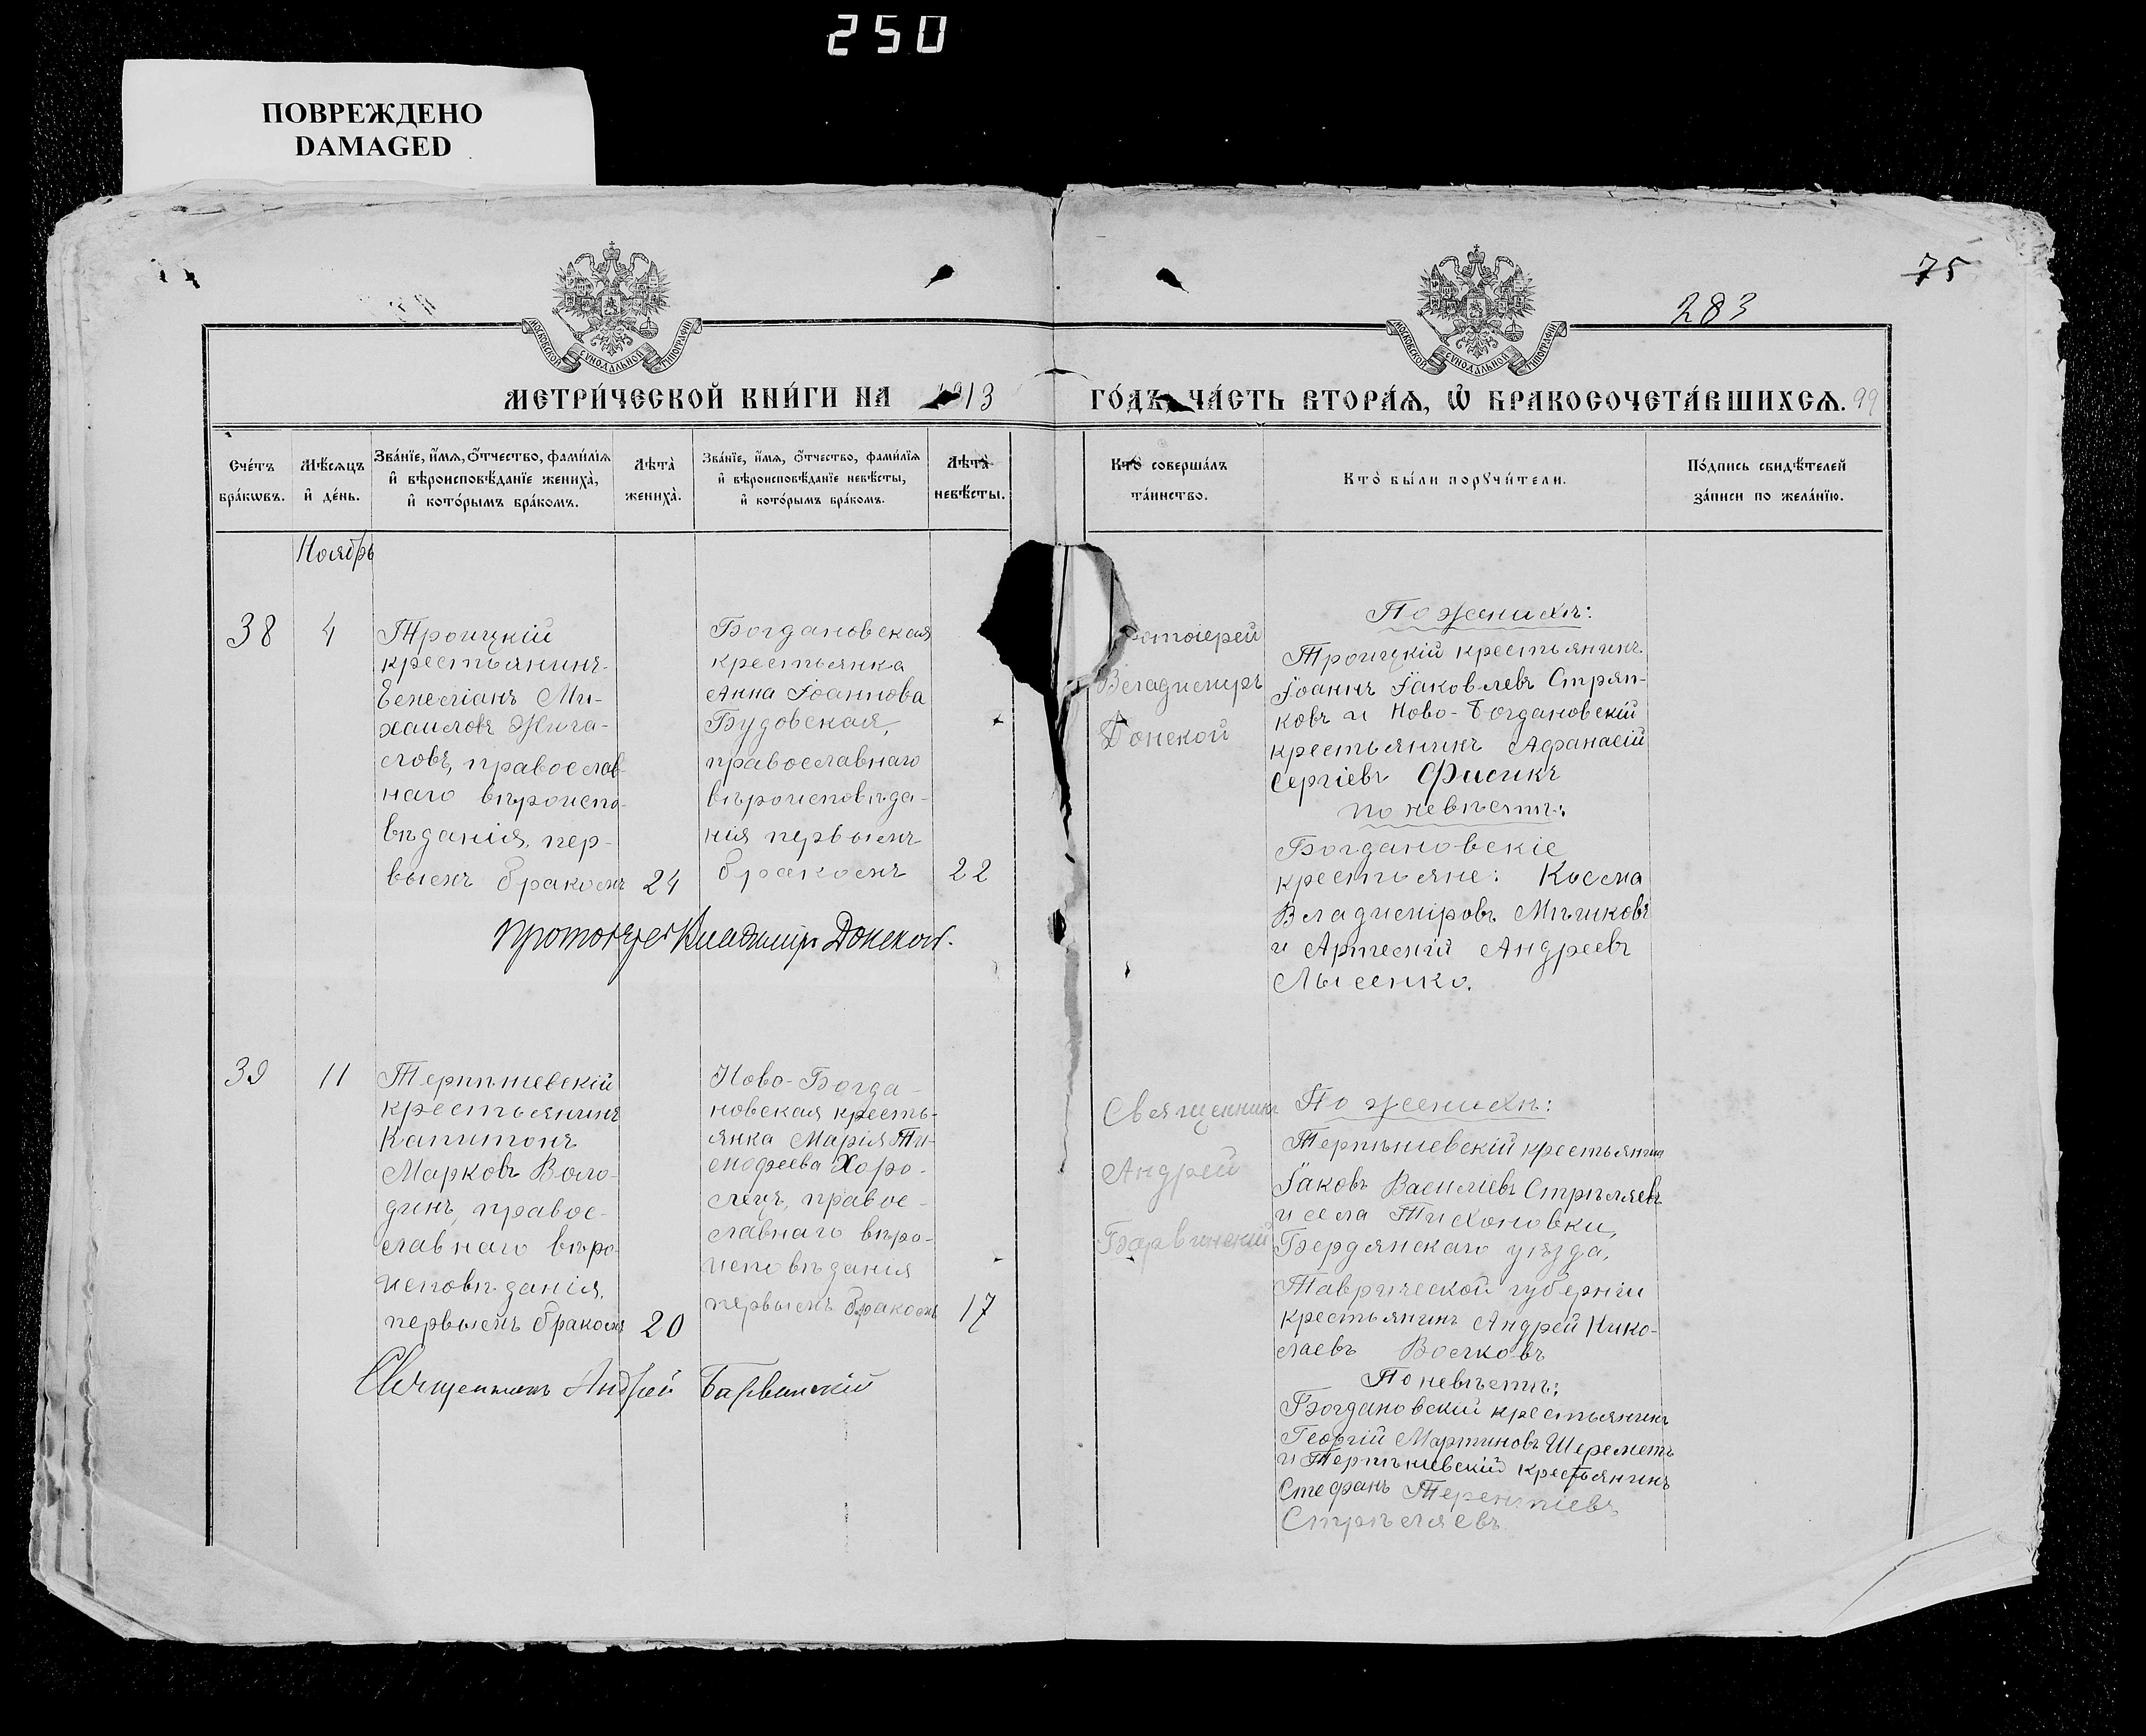 250
ПОВРЕЖДЕНО
DAMAGED
75
283
МОСКОВСКОЙ СѴНОДАЛЬНОЙ ТИПОГРАФІИ
МОСКОВСКОЙ СѴНОДАЛЬНОЙ ТИПОГРАФІИ
МЕТРИ́ЧЕСКОЙ КНИ́ГИ НА 1913
ГО́ДЪ ЧА́СТЬ ВТОРА́Ѧ, Ѡ҆ БРАКОСОЧЕТА́ВШИХСѦ. 99
Сче́тъ
бра́кѡвъ.
Мѣ́сѧцъ
и҆ де́нь.
Зва́нїе, и҆́мѧ, ѻ҆́тчество, фами́лїѧ
и҆ вѣроисповѣ́данїе жениха̀,
и҆ кото́рымъ бра́комъ.
Лѣта̀
жениха̀.
Зва́нїе, и҆́мѧ, ѻ҆́тчество, фами́лїѧ
и҆ вѣроисповѣ́данїе невѣ́сты,
и҆ кото́рымъ бра́комъ.
Лѣта̀
невѣ́сты.
Кто̀ соверша́лъ
та́инство.
Кто̀ бы́ли порꙋчи́тели.
По́дпись свидѣ́телей
за́писи по жела́нїю.
Ноябрь
38
4
Троицкій
крестьянинъ
Емеліанъ Ми-
хаиловъ Жига-
ловъ, православ-
наго вѣроиспо-
вѣданія, пер-
вымъ бракомъ
24
Богдановская
крестьянка
Анна Іоаннова
Будовская,
православнаго
вѣроисповѣда-
нія первымъ
бракомъ
22
Протоіерей Владиміръ Донской.
отоіерей
Владиміръ
Донской
По женихѣ:
Троицкій крестьянинъ
Іоаннъ Іаковлевъ Стрял-
ковъ и Ново-Богдановскій
крестьянинъ Афанасій
Сергіевъ Фисикъ
по невѣстѣ:
Богдановскіе
крестьяне: Косма
Владиміровъ Мѣшковъ
и Артемій Андреевъ
Лысенко.
39
11
Терпѣніевскій
крестьянинъ
Капитонъ
Марковъ Воло-
динъ, право-
славнаго вѣро-
исповѣданія,
первымъ бракомъ
20
Ново-Богда-
новская кресть-
янка Марія Ти-
мофеева Хоро-
лецъ, право-
славнаго вѣро-
исповѣданія
первымъ бракомъ
17
Священникъ Андрей Барвинскій
Священникъ
Андрей
Барвинскій
По женихѣ:
Терпѣніевскій крестьянинъ
Іаковъ Василіевъ Стрѣляевъ
и села Тихоновки,
Бердянскаго уѣзда,
Таврической губерніи
крестьянинъ Андрей Нико-
лаевъ Волковъ
По невѣстѣ:
Богдановскій крестьянинъ
Георгій Мартиновъ Шереметъ
и Терпѣніевскій крестьянинъ
Стефанъ Терентіевъ
Стрѣляевъ